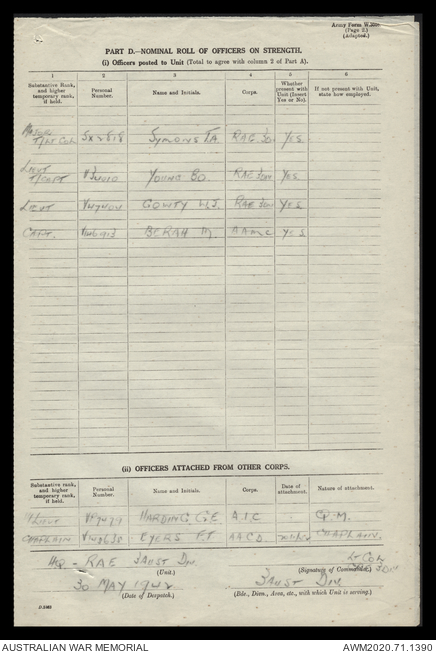 Army Form W.
(Page 2.)
(Adapted.)
PART D.—NOMINAL ROLL OF OFFICERS ON STRENGTH.
(i) Officers posted to Unit (Total to agree with column 2 of Part A).
1 2 3 4 5 6
Substantive Rank, and higher temporary rank, if held. Personal Number. Name and Initials. Corps. Whether present with Unit (Insert Yes or No). If not present with Unit, state how employed.
MAJOR
T/Lt Col SX2818 SYMONS F.A. RAE Yes
LIEUT
T/CAPT YOUNG B.O. RAE Yes
LIEUT GOWTY W.J. RAE Yes
CAPT. BERAH M. AAMC Yes
(ii) OFFICERS ATTACHED FROM OTHER CORPS.
Substantive rank, and higher temporary rank, if held. Personal Number. Name and Initials. Corps. Date of attachment. Nature of attachment.
LIEUT HARDING G.E. A.I.C Q.M.
CHAPLAIN EYERS F.T AACD CHAPLAIN.
HQ - RAE 3 AUST DIV Lt Col
(Unit.) (Signature of Commander.)
30 MAY 1942 3 AUST DIV
(Date of Despatch.) (Bde., Divn., Area, etc., with which Unit is serving.)
AUSTRALIAN WAR MEMORIAL AWM2020.71.1390